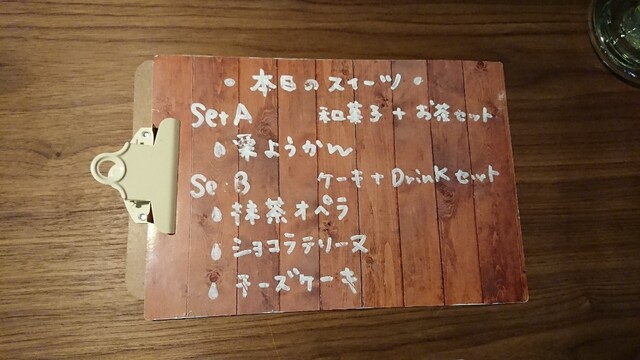 ・本日のスイーツ・
Set A 和菓子+お茶セット
栗ようかん
Set B ケーキ+Drinkセット
抹茶オペラ
ショコラテリーヌ
チーズケーキ